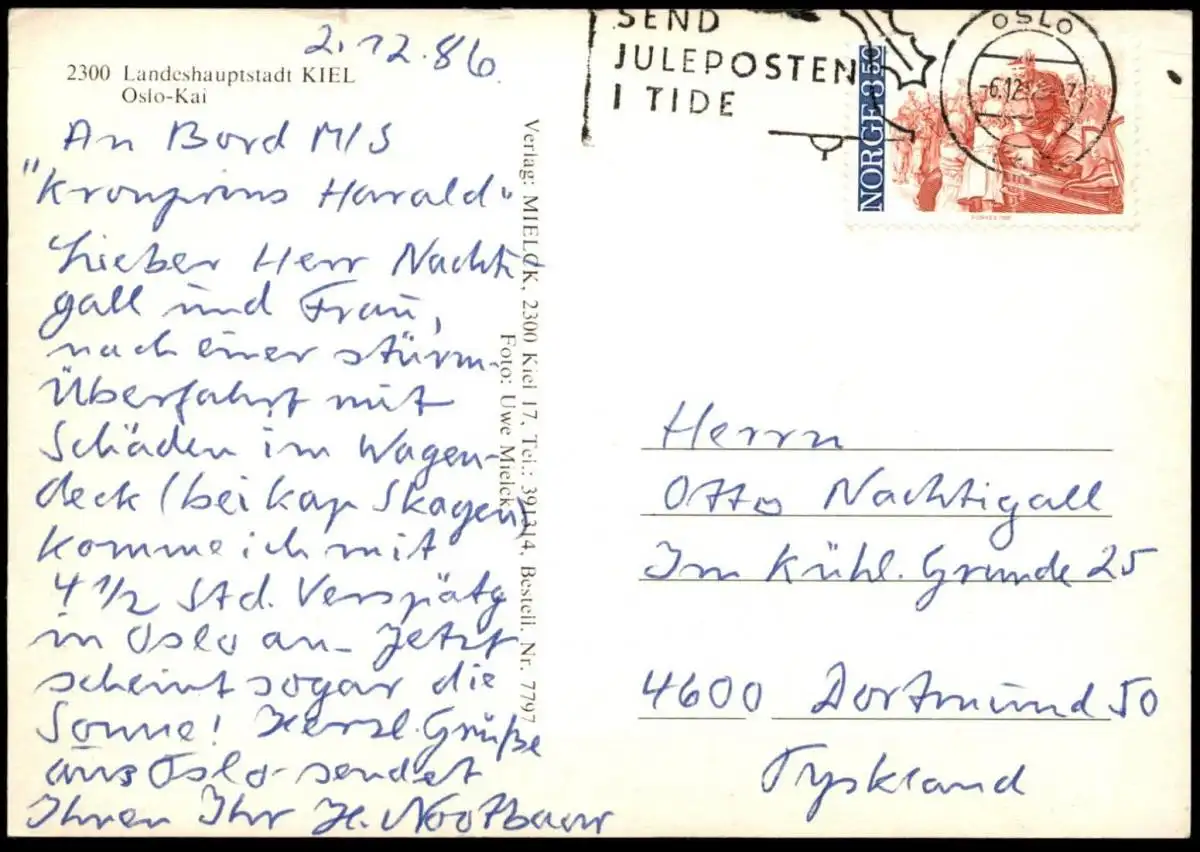 2.12.86
2300 Landeshauptstadt KIEL
Oslo-Kai
An Bord M/S
"Kronprins Harald"
Lieber Herr Nachti
gall und Frau,
nach einer stürm.
Überfahrt mit
Schäden im Wagen-
deck (bei Kap Skagen)
komme ich mit
4 1/2 Std. Verspätg
in Oslo an. Jetzt
scheint sogar die
Sonne! Herzl. Grüße
aus Oslo sendet
Ihnen Ihr H. Nootbaar
Verlag: MIELCK, 2300 Kiel 17, Tel.: 391314, Bestell. Nr. 7797
Foto: Uwe Mielck
SEND
JULEPOSTEN
I TIDE
OSLO
-6.12
NORGE 3.50
Herrn
Otto Nachtigall
Im Kühl. Grunde 25
4600 Dortmund 50
Tyskland